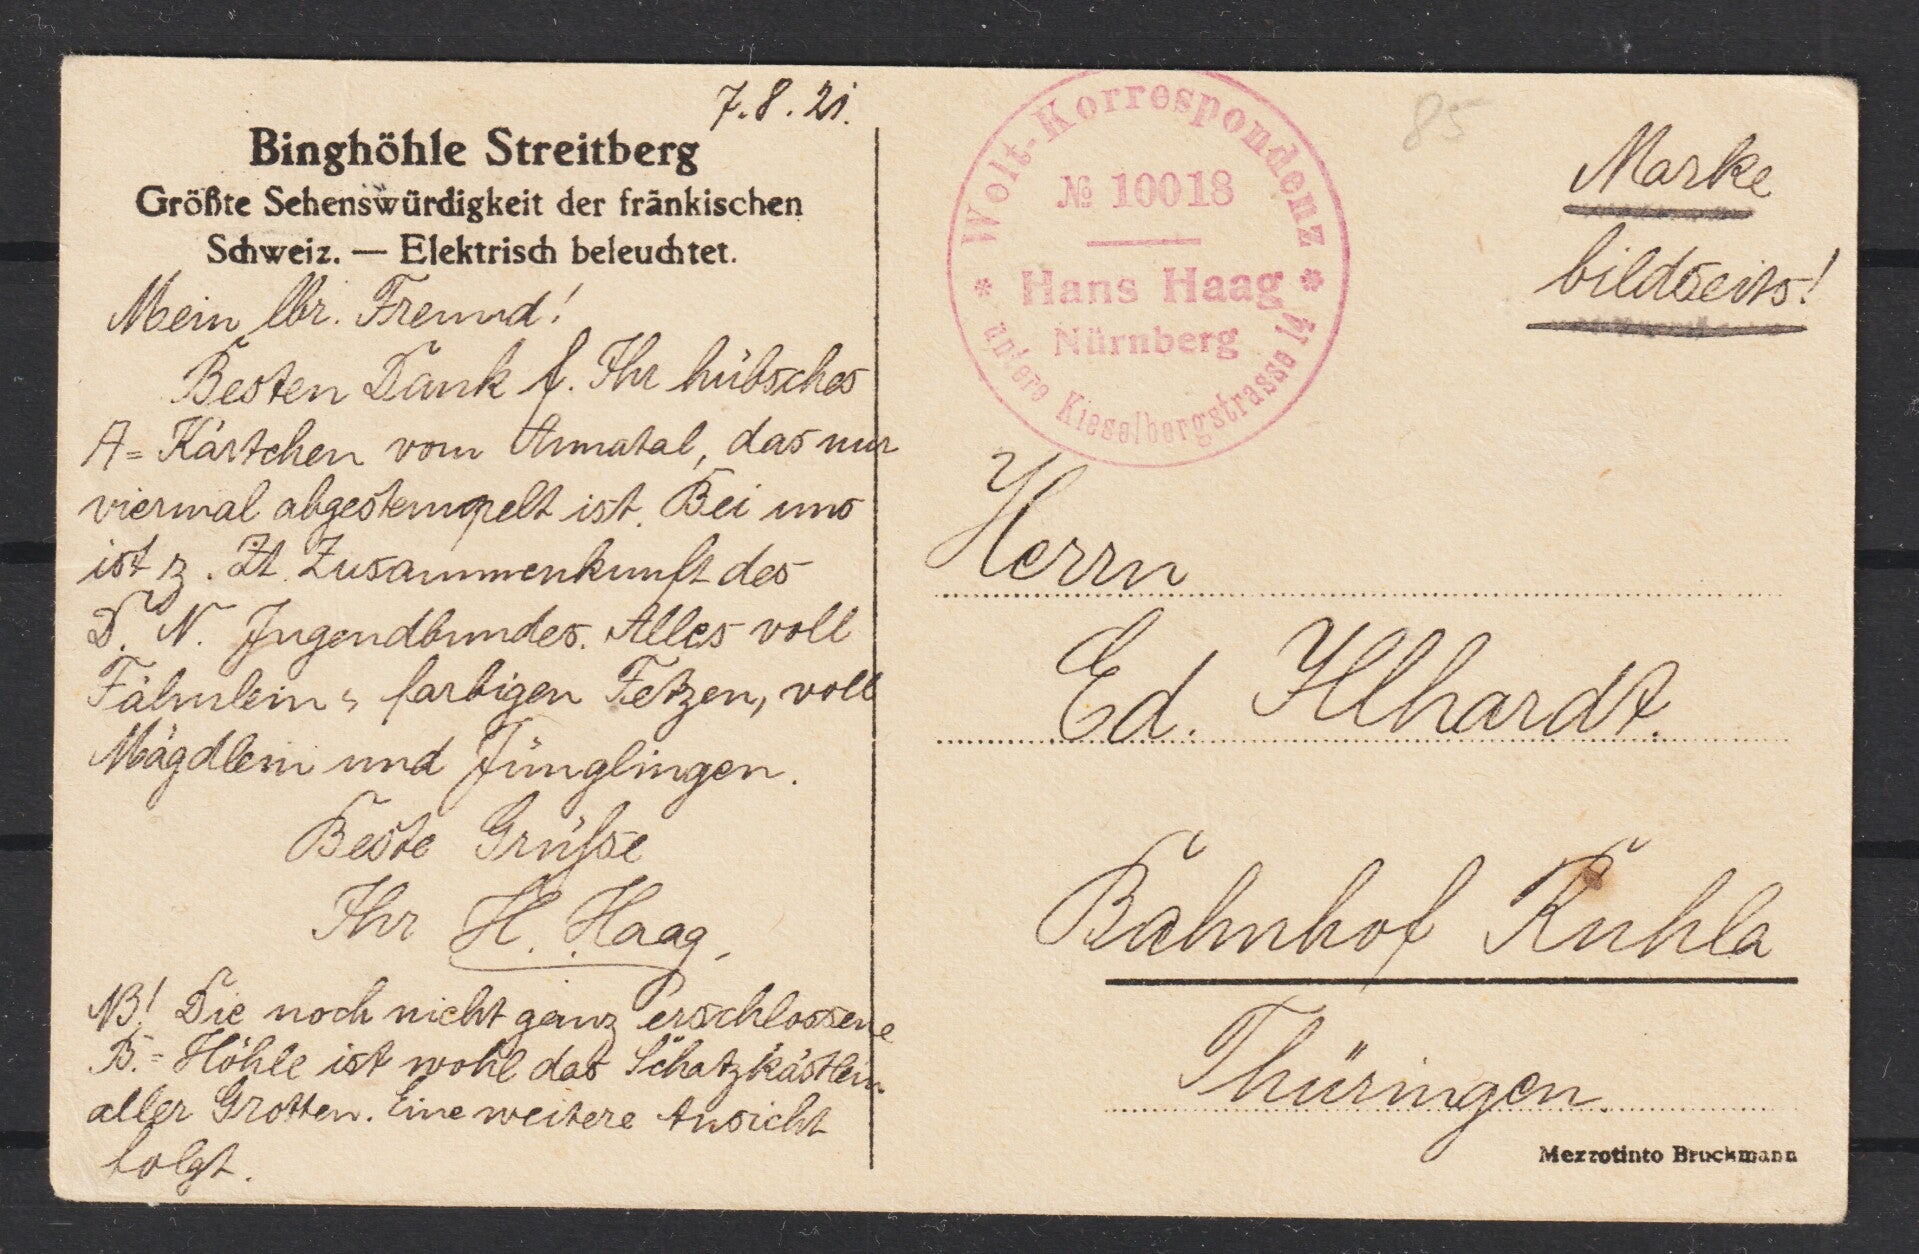 7.8.21.
Binghöhle Streitberg
Größte Sehenswürdigkeit der fränkischen
Schweiz. — Elektrisch beleuchtet.
Mein lbr. Freund!
Besten Dank f. Ihr hübsches
A= Kärtchen vom Annatal, das nur
viermal abgestempelt ist. Bei uns
ist z. Zt. Zusammenkunft des
D. N. Jugendbundes. Alles voll
Fähnlein, farbigen Fetzen, voll
Mägdlein und Jünglingen.
Beste Grüße
Ihr H. Haag.
NB! Die noch nicht ganz erschlossene
B.= Höhle ist wohl das Schatzkästlein
aller Grotten. Eine weitere Ansicht
folgt.
Welt-Korrespondenz
№ 10018
Hans Haag
Nürnberg
untere Kieselbergstrasse 14
85
Marke
bildseits!
Herrn
Ed. Ilhardt.
Bahnhof Ruhla
Thüringen.
Mezzotinto Bruckmann